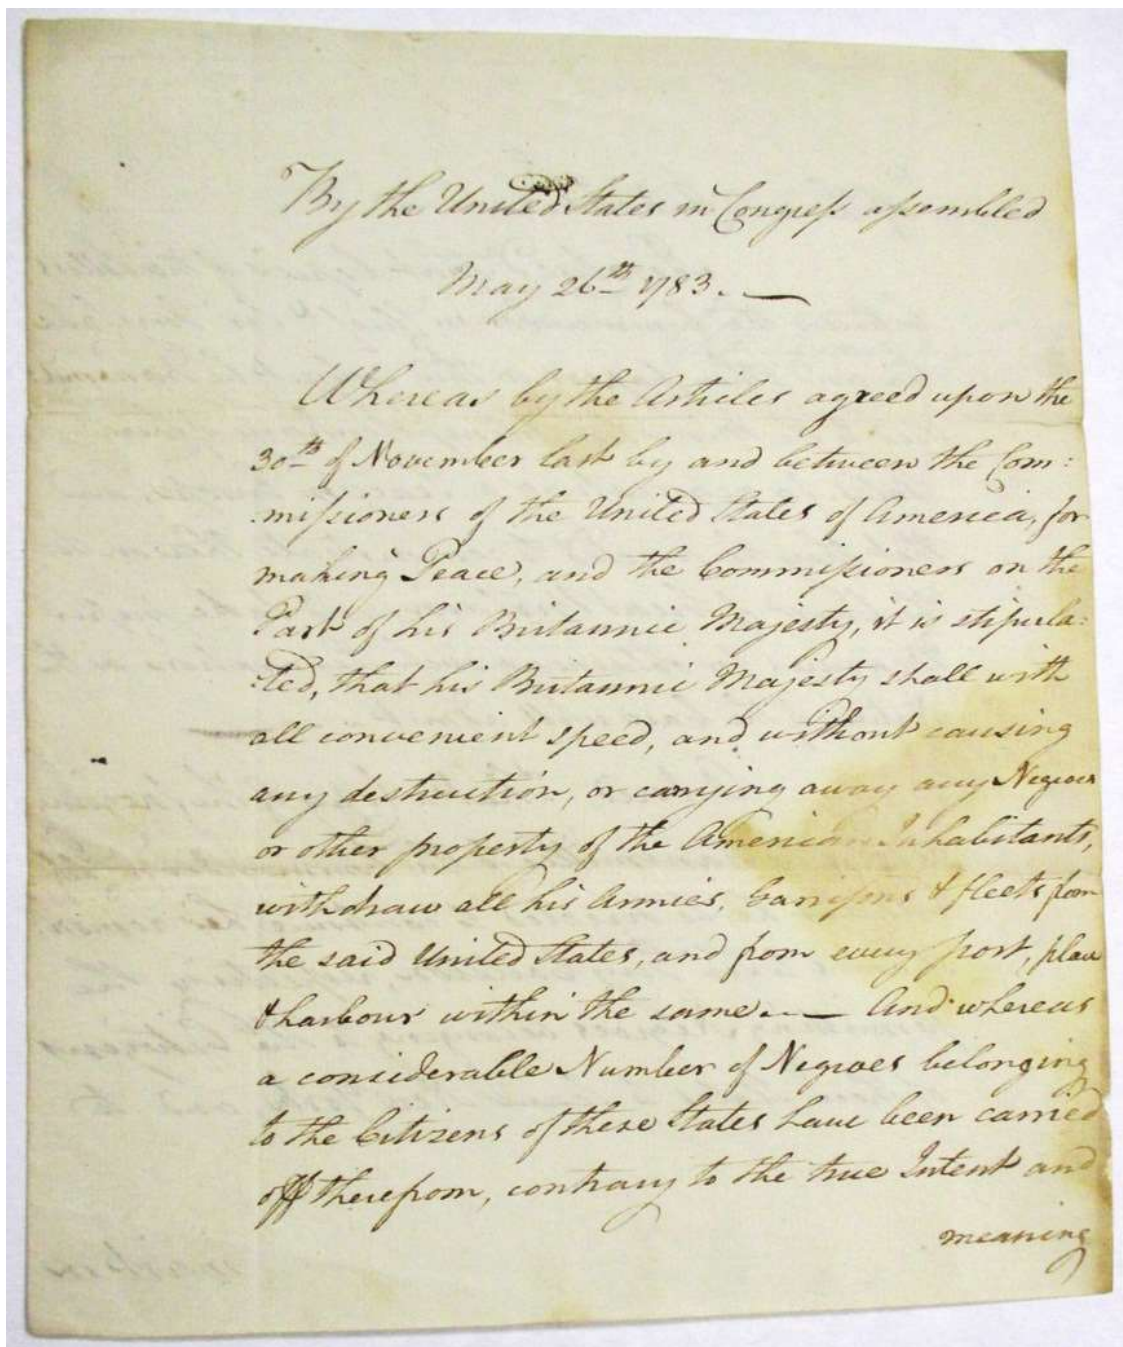 By the United States in Congress assembled
May 26th 1783. —
Whereas by the Articles agreed upon the
30th of November last by and between the Com:
:missioners of the United States of America, for
making Peace, and the Commissioners on the
Part of his Britannic Majesty, it is stipula:
:ted, that his Britannic Majesty shall with
all convenient speed, and without causing
any destruction, or carrying away any Negroes
or other property of the American Inhabitants,
withdraw all his Armies, Garrisons & fleets from
the said United States, and from every port, place
& harbour within the same. — And whereas
a considerable Number of Negroes belonging
to the Citizens of these States have been carried
off therefrom, contrary to the true Intent and
meaning